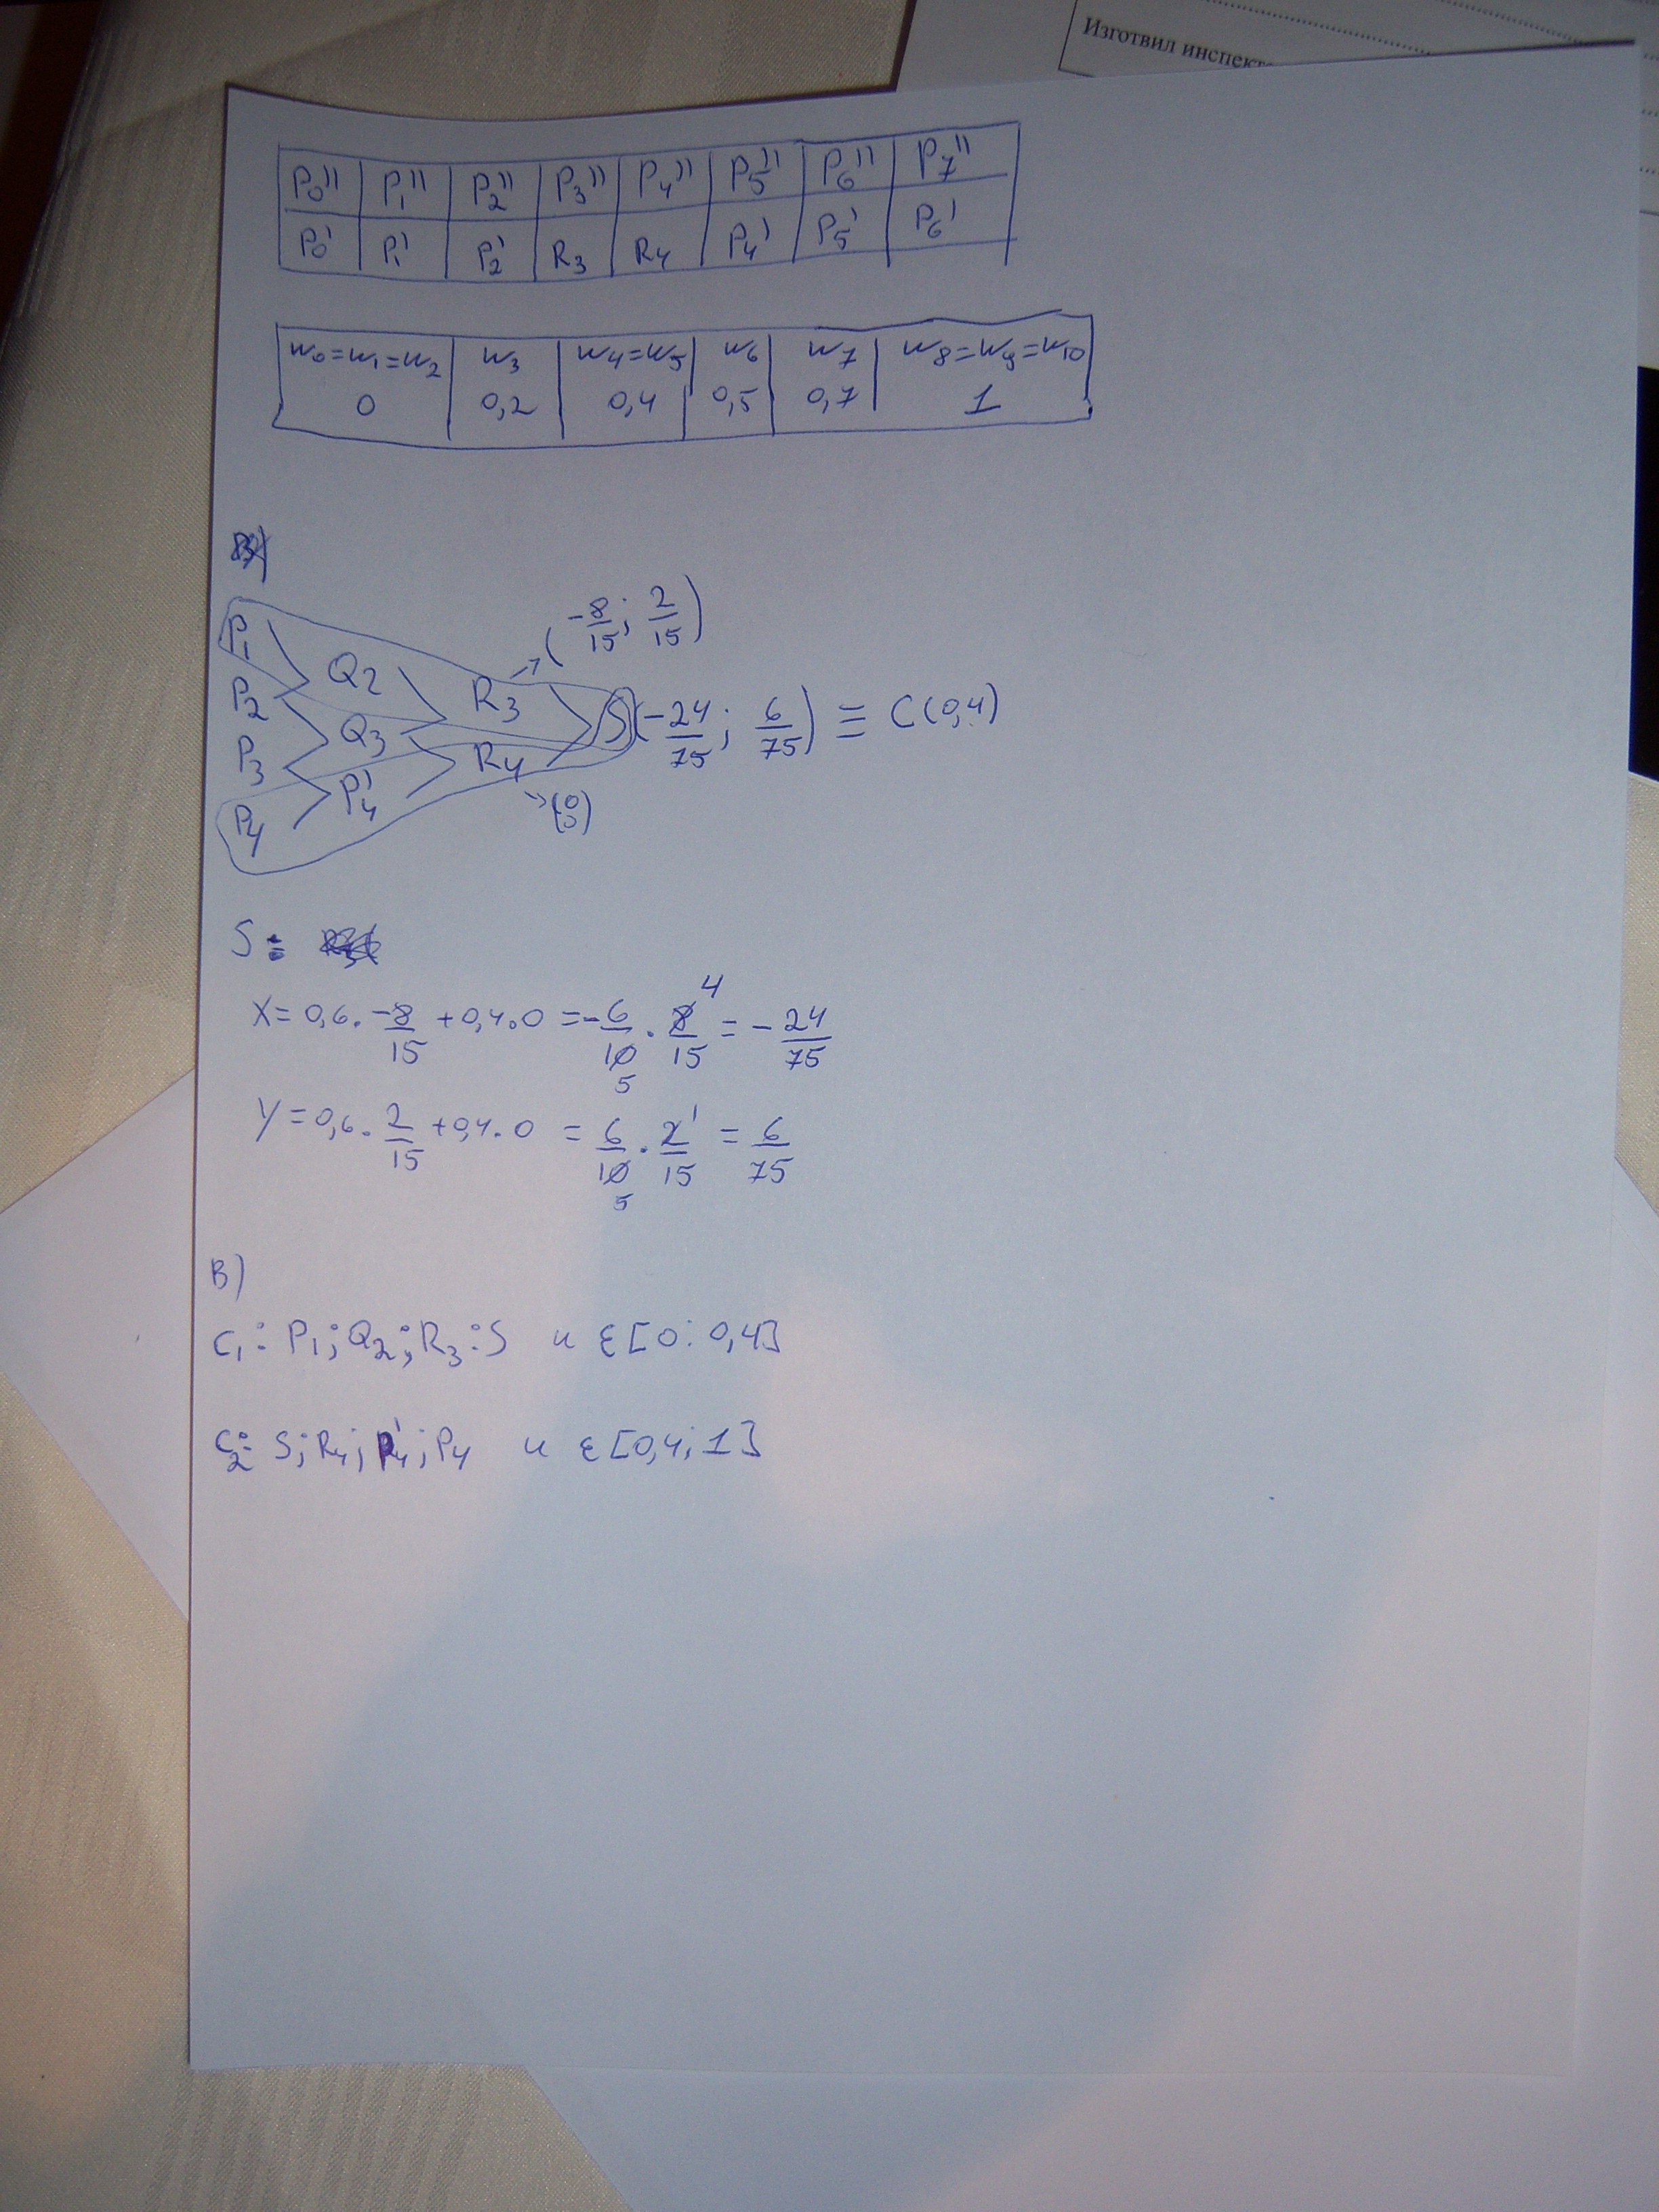 Изготвил инспект
P₀'' P₁'' P₂'' P₃'' P₄'' P₅'' P₆'' P₇''
P₀' P₁' P₂' R₃ R₄ P₄' P₅' P₆'
u₀=u₁=u₂ u₃ u₄=u₅ u₆ u₇ u₈=u₉=u₁₀
0 0,2 0,4 0,5 0,7 1
(-8/15; 2/15)
P₁
Q₂
P₂ R₃
Q₃ S(-24/75; 6/75) ≡ C(0,4)
P₃ R₄
P₄'
P₄ (0 0)
S:
X = 0,6.-8/15 + 0,4.0 = -6/10 5 . 8/15 4 = -24/75
Y = 0,6.2/15 + 0,4.0 = 6/10 5 . 2/15 1 = 6/75
В)
C₁: P₁; Q₂; R₃; S u ε [0; 0,4]
C₂: S; R₄; P₄'; P₄ u ε [0,4; 1]